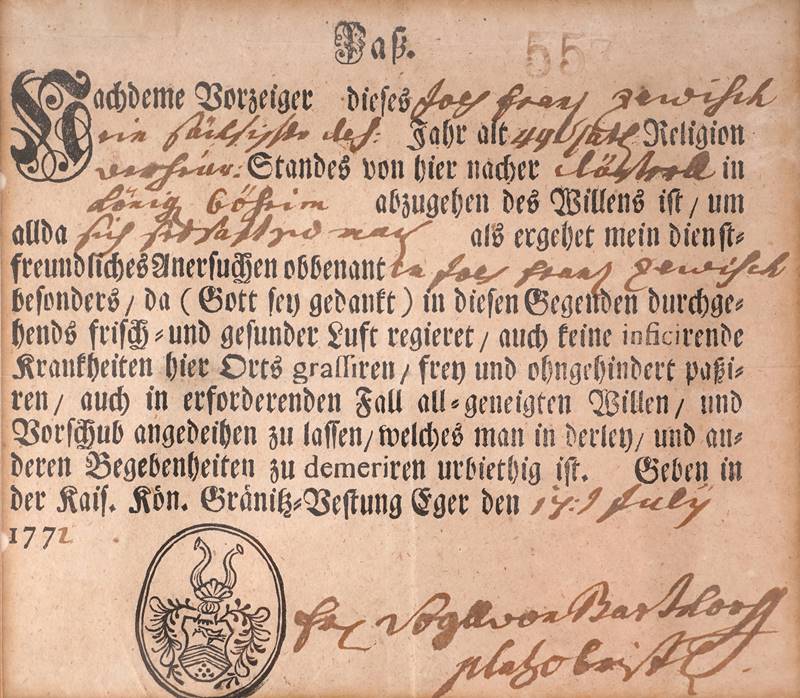 Paß.
557
Nachdeme Vorzeiger dieses Jos franz
ein Jahr alt 49 Cath Religion
verheur: Standes von hier nacher in
König böheim abzugehen des Willens ist / um
allda sich als ergehet mein dienst⸗
freundliches Anersuchen obbenanten Jos franz
besonders / da ( Gott sey gedankt ) in diesen Gegenden durchge⸗
hends frisch⸗und gesunder Luft regieret / auch keine inficirende
Krankheiten hier Orts grassiren / frey und ohngehindert paßi⸗
ren / auch in erforderenden Fall all⸗geneigten Willen / und
Vorschub angedeihen zu lassen / welches man in derley / und an⸗
deren Begebenheiten zu demeriren urbiethig ist. Geben in
der Kais. Kön. Gränitz⸗Vestung Eger den July
1772
von
platzobrist